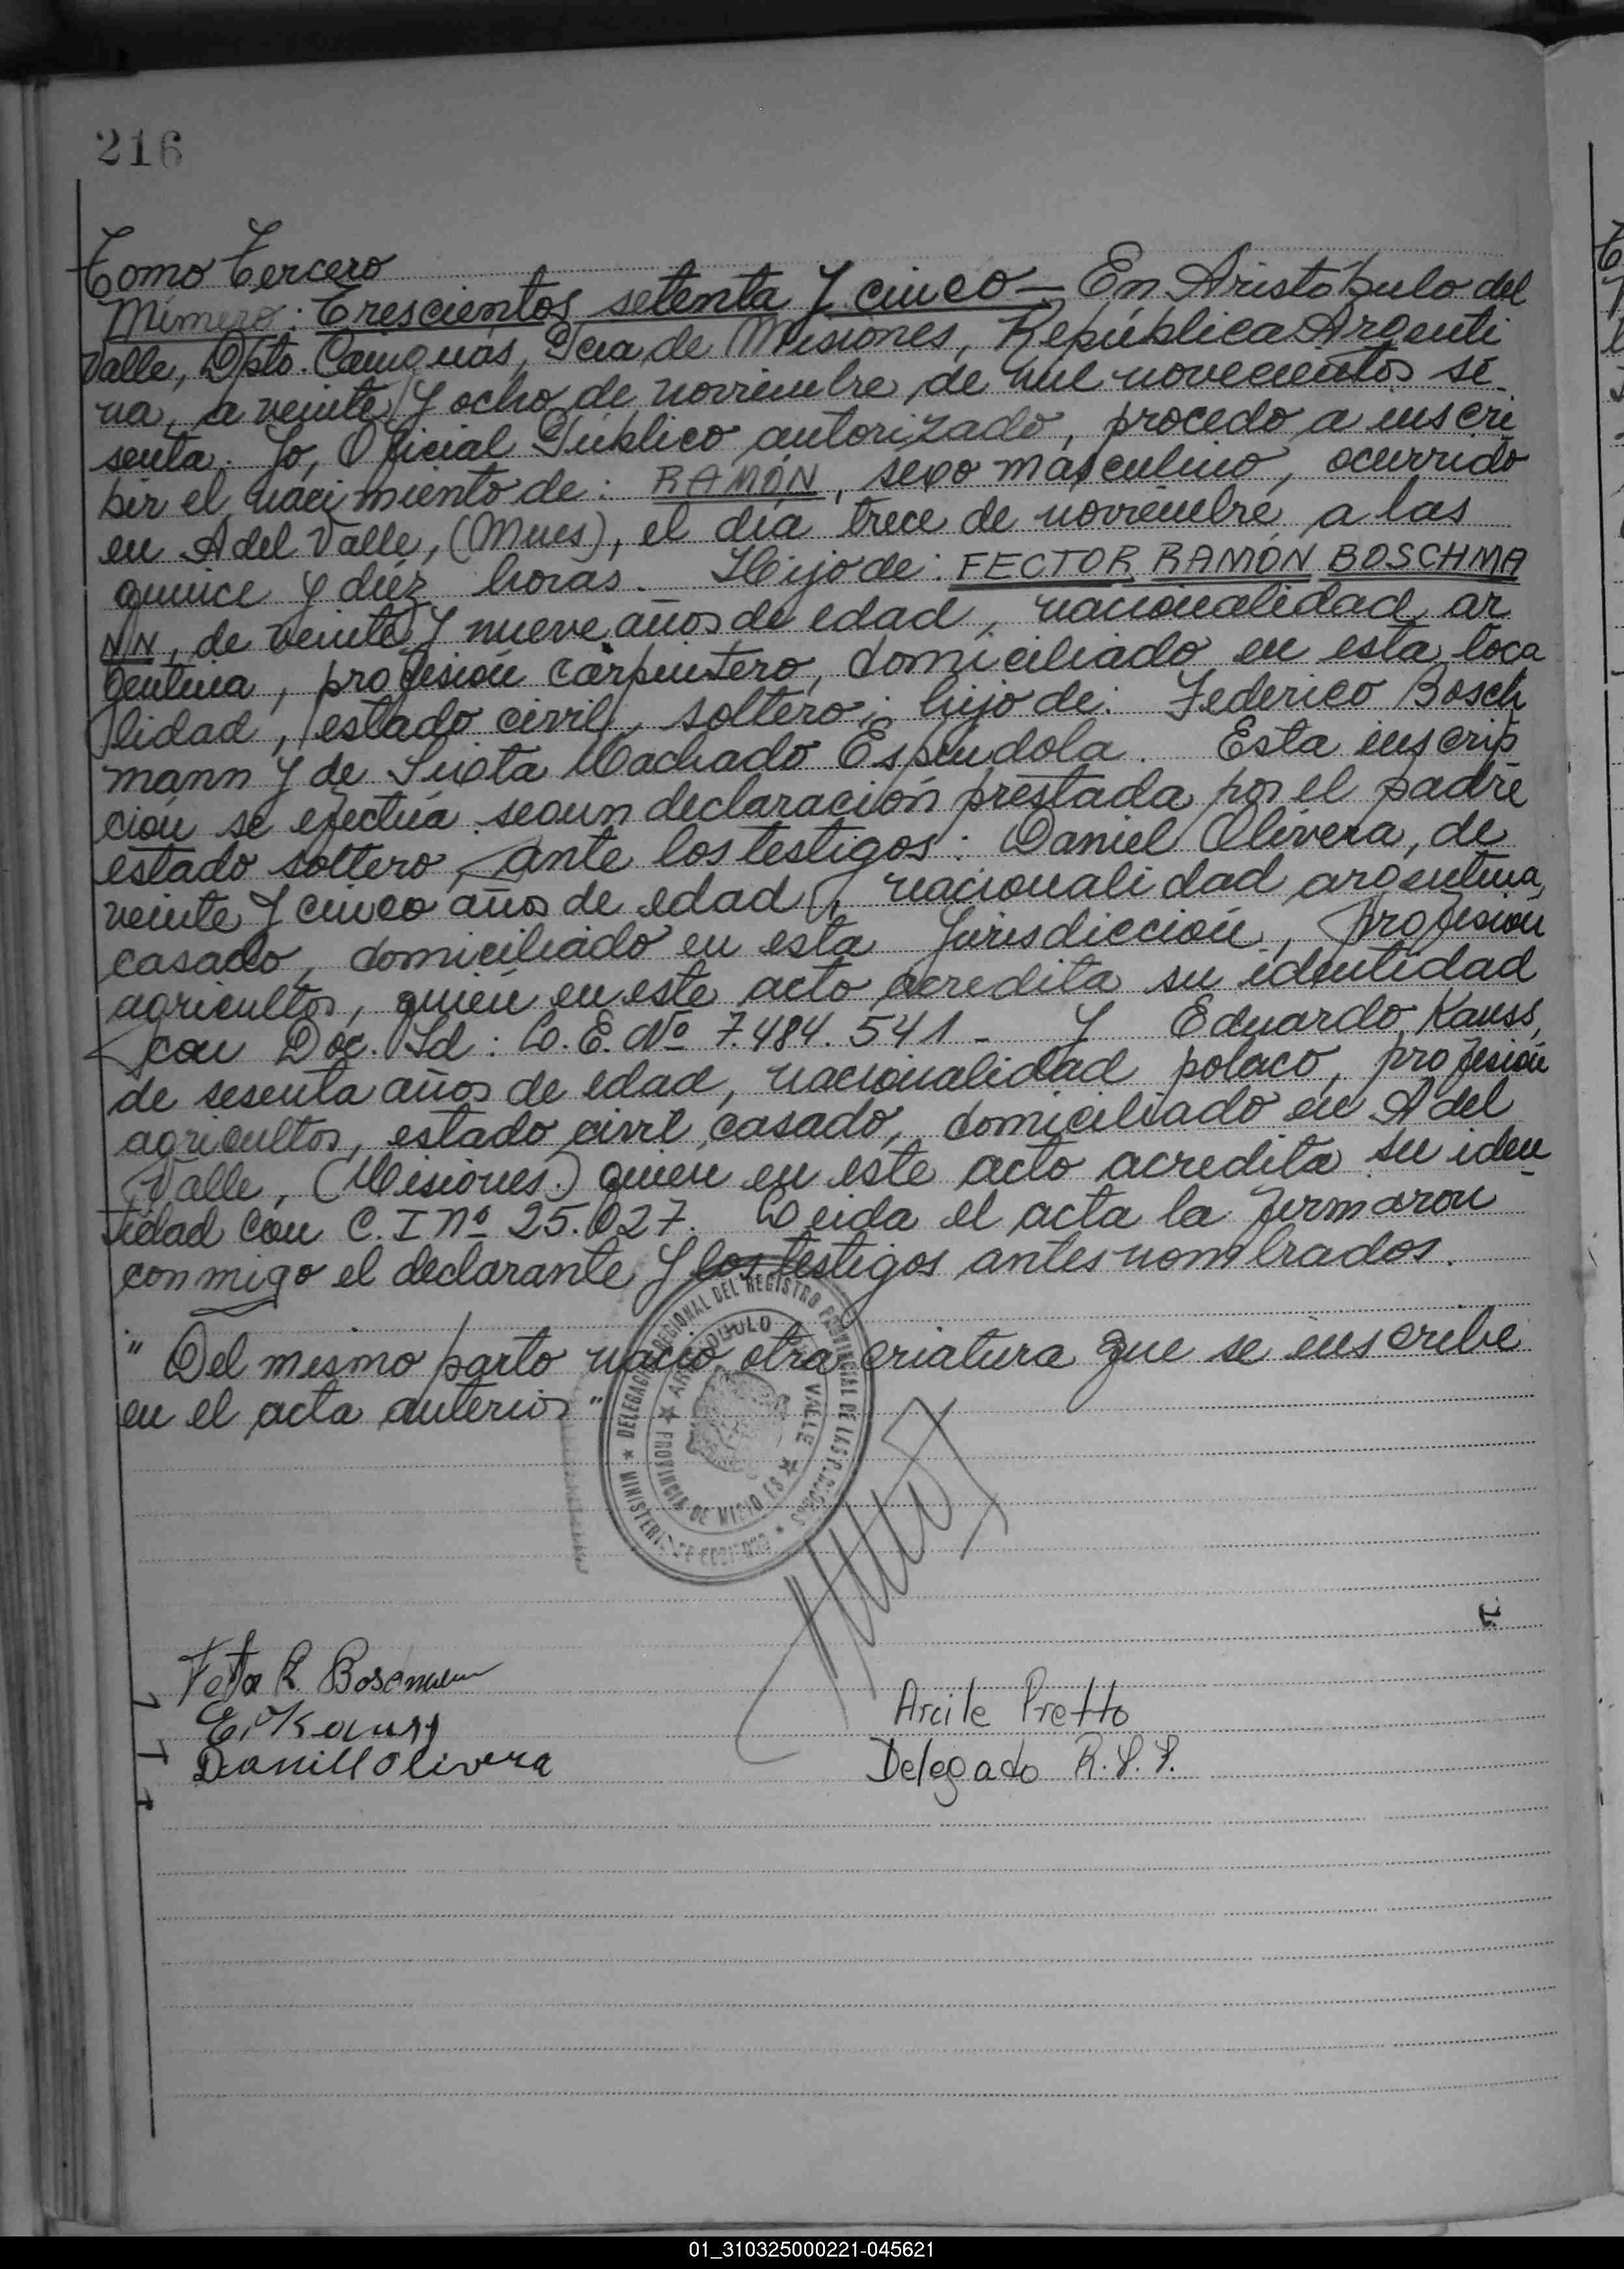 216
Tomo Tercero
Número: Trescientos setenta y cinco — En Aristóbulo del
Valle, Dpto. Cainguás, Pcia de Misiones, República Argenti
na, a veinte y ocho de noviembre de mil novecientos se-
senta. Yo, Oficial Público autorizado, procedo a inscri
bir el nacimiento de: RAMÓN, sexo masculino, ocurrido
en A del Valle, (Mnes), el día trece de noviembre a las
quince y diéz horas. Hijo de: FECTOR RAMÓN BOSCHMA
NN, de veinte y nueve años de edad, nacionalidad ar
gentina, profesión carpintero, domiciliado en esta loca
lidad, estado civil, soltero; hijo de: Federico Bosch
mann y de Sixta Machado Espíndola. Esta inscrip
ción se efectúa segun declaración prestada por el padre
estado soltero, ante los testigos: Daniel Olivera, de
veinte y cinco años de edad, nacionalidad argentina,
casado, domiciliado en esta Jurisdicción, profesión
agricultor, quién en este acto acredita su identidad
con Doc. Id: L.E. Nº 7.484.541 - y Eduardo Kauss,
de sesenta años de edad, nacionalidad polaco, profesión
agricultor, estado civil casado, domiciliado en A del
Valle, (Misiones.) quién en este acto acredita su iden
tidad con C.I Nº 25.027. Leida el acta la firmaron
conmigo el declarante y los testigos antes nombrados.
" Del mismo parto nació otra criatura que se inscribe
en el acta anterior "
DELEGACIÓN REGIONAL DEL REGISTRO PROVINCIAL DE LAS PERSONAS
ARISTOBULO DEL VALLE
PROVINCIA DE MISIONES
MINISTERIO DE GOBIERNO
R. Boschmann
E. Kauss
Daniel Olivera
Arcile Pretto
Delegado R.P.P.
01_310325000221-045621